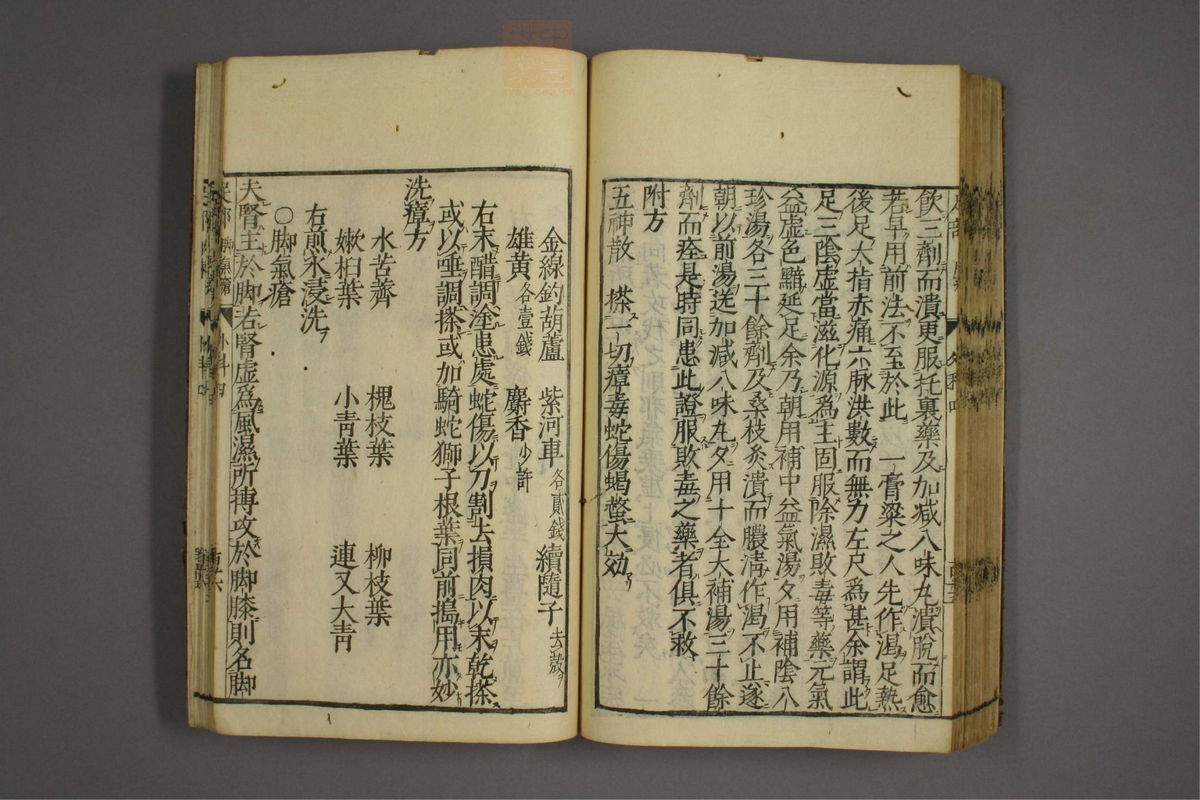 飲三劑而潰更服托裏藥及加減八味丸潰脫而愈
若早用前法不至於此 一膏粱之人先作渴足熱
後足大指赤痛六脉洪數而無力左尺爲甚余謂此
足三陰虛當滋化源爲主固服除濕敗毒等藥元氣
益虛色黯延足余乃朝用補中益氣湯夕用補陰八
珍湯各三十餘劑及桑枝灸潰而膿淸作渴不止遂
朝以前湯送加減八味丸夕用十全大補湯三十餘
劑而痊是時同患此證服敗毒之藥者俱不救
附方
五神散 搽一切瘴毒蛇傷蝎螫大効
金線釣葫蘆 紫河車各貳錢 續隨子去殼
雄黄各壹錢 麝香少許
右末醋調塗患處蛇傷以刀割去損肉以末乾搽
或以唾調搽或加騎蛇獅子根葉同前搗用亦妙
洗瘴方
水苦薺 槐枝葉 柳枝葉
嫰桕葉 小靑葉 連又大靑
右煎水浸洗
○脚氣瘡
夫腎主於脚若腎虛爲風濕所搏攻於脚膝則名脚